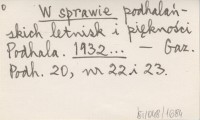 W sprawie podhalań-
skich letnisk i piękności
Podhala. 1932... — Gaz.
Podh. 20, nr 22 i 23.